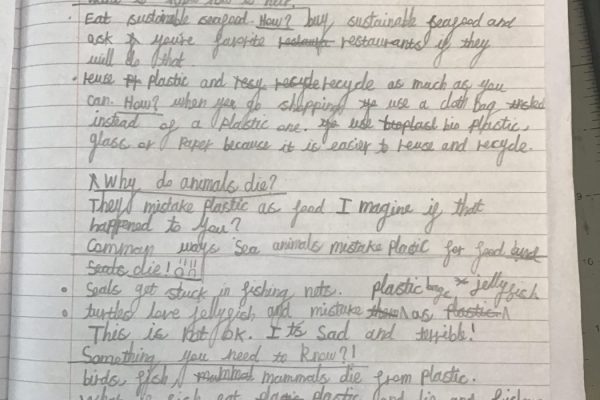 • Eat sustainable seagood. How? buy sustainable seagood and
ask you're favorite restaurants if they
will do that
• reuse plastic and recycle as much as you
can. How? when you go shopping use a cloth bag
instead of a plastic one. use bio plastic,
glass or Paper because it is easier to reuse and recycle.
Why do animals die?
They mistake plastic as food I magine if that
happened to you?
Comman ways sea animals mistake plastic for food
Seals die!
• Seals get stuck in fishing nets. plastic bags * jellyfish
• turtles love jellyfish and mistake as
This is not ok. Its sad and terrible!
Something you need to know?!
birds, fish, mammals die from plastic.